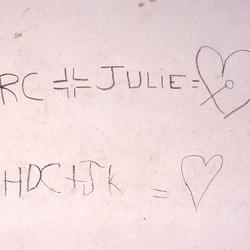 RC + JULIE =
HDC + JK =